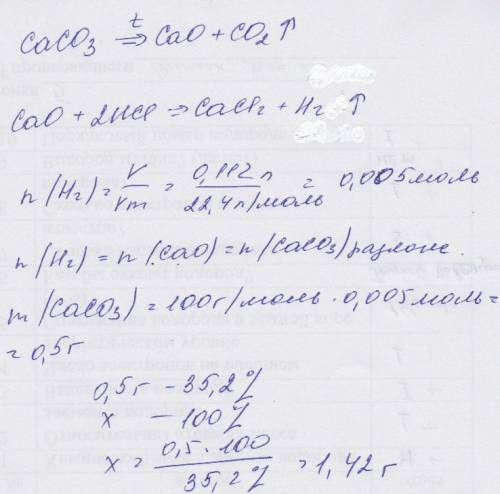 CaCO₃ ⇒ᵗ CaO + CO₂↑
CaO + 2HCl ⇒ CaCl₂ + H₂ ↑
n(H₂) = V/Vm = 0,112л/22,4л/моль = 0,005моль
n(H₂) = n(CaO) = n(CaCO₃) разлож.
m(CaCO₃) = 100г/моль · 0,005моль =
= 0,5г
0,5г – 35,2%
x – 100%
x = 0,5·100/35,2% = 1,42г